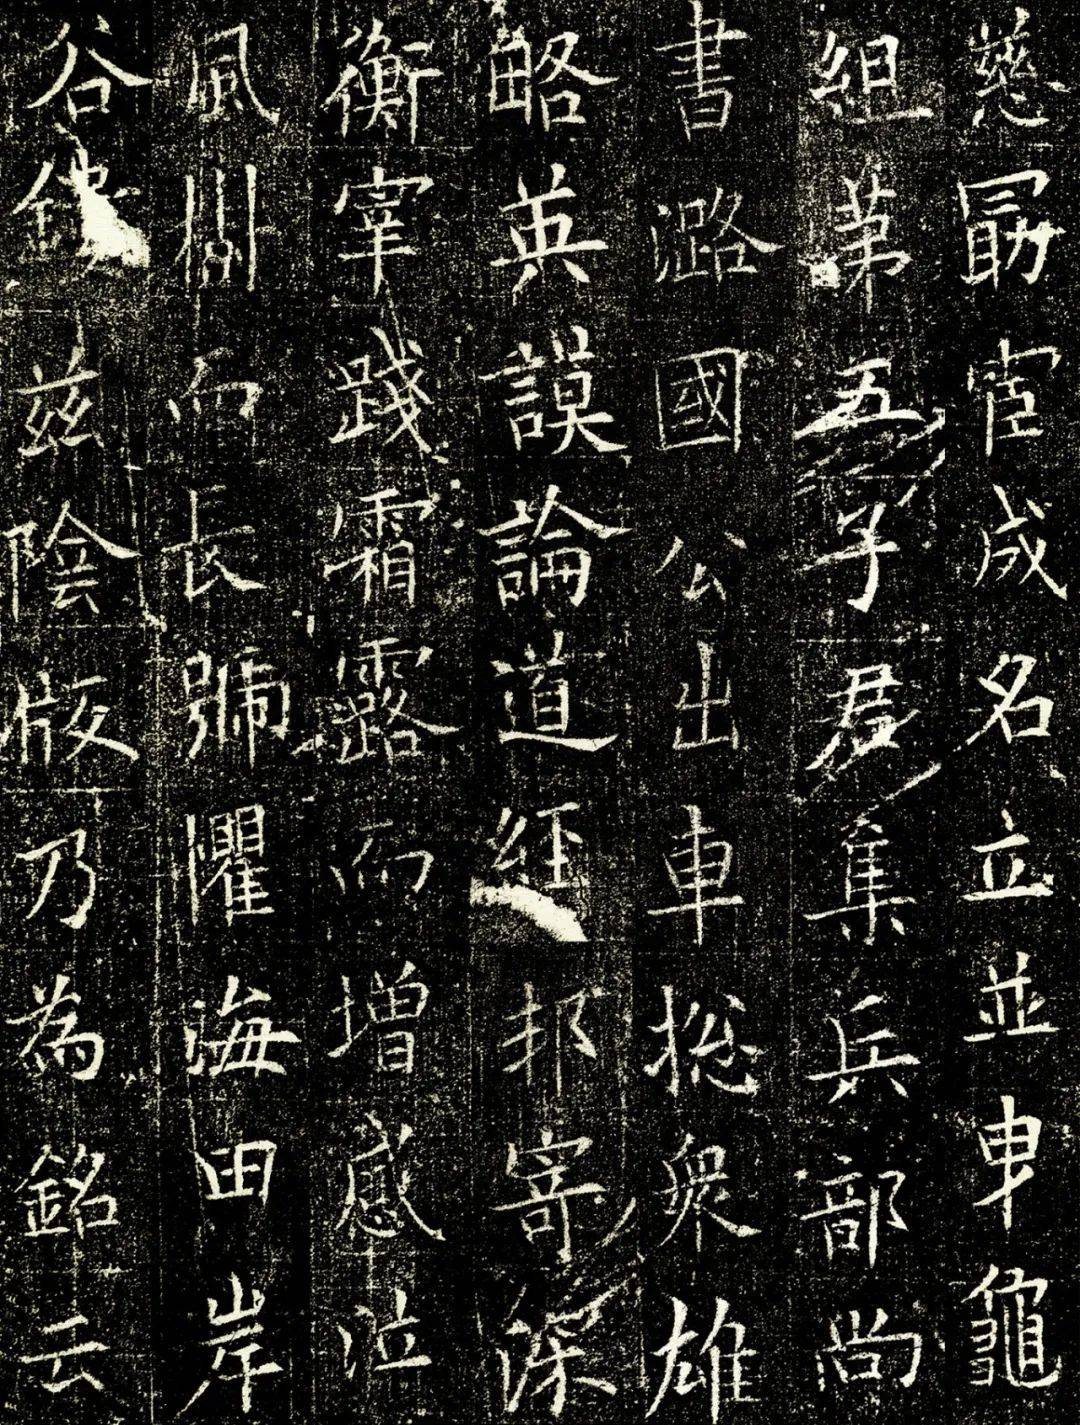 慈勗宦成名立並申龜
組第五子君集兵部尚
書潞國公出車揔衆雄
略英謨論道経邦寄深
衡宰踐霜露而增感泣
風樹而長號懼海田岸
谷兹陰版乃為銘云